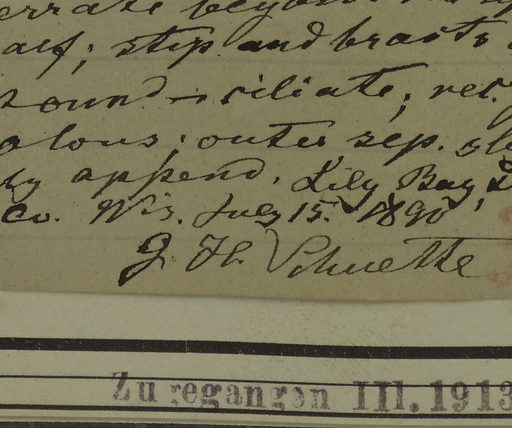 errate beyond
half; stip. and bracts
round-ciliate; rec.
outer sep.
append. Lily Bay, D
Co. Wis. July 15. 1890
J. H. Schuette
Zugegangen III. 1913